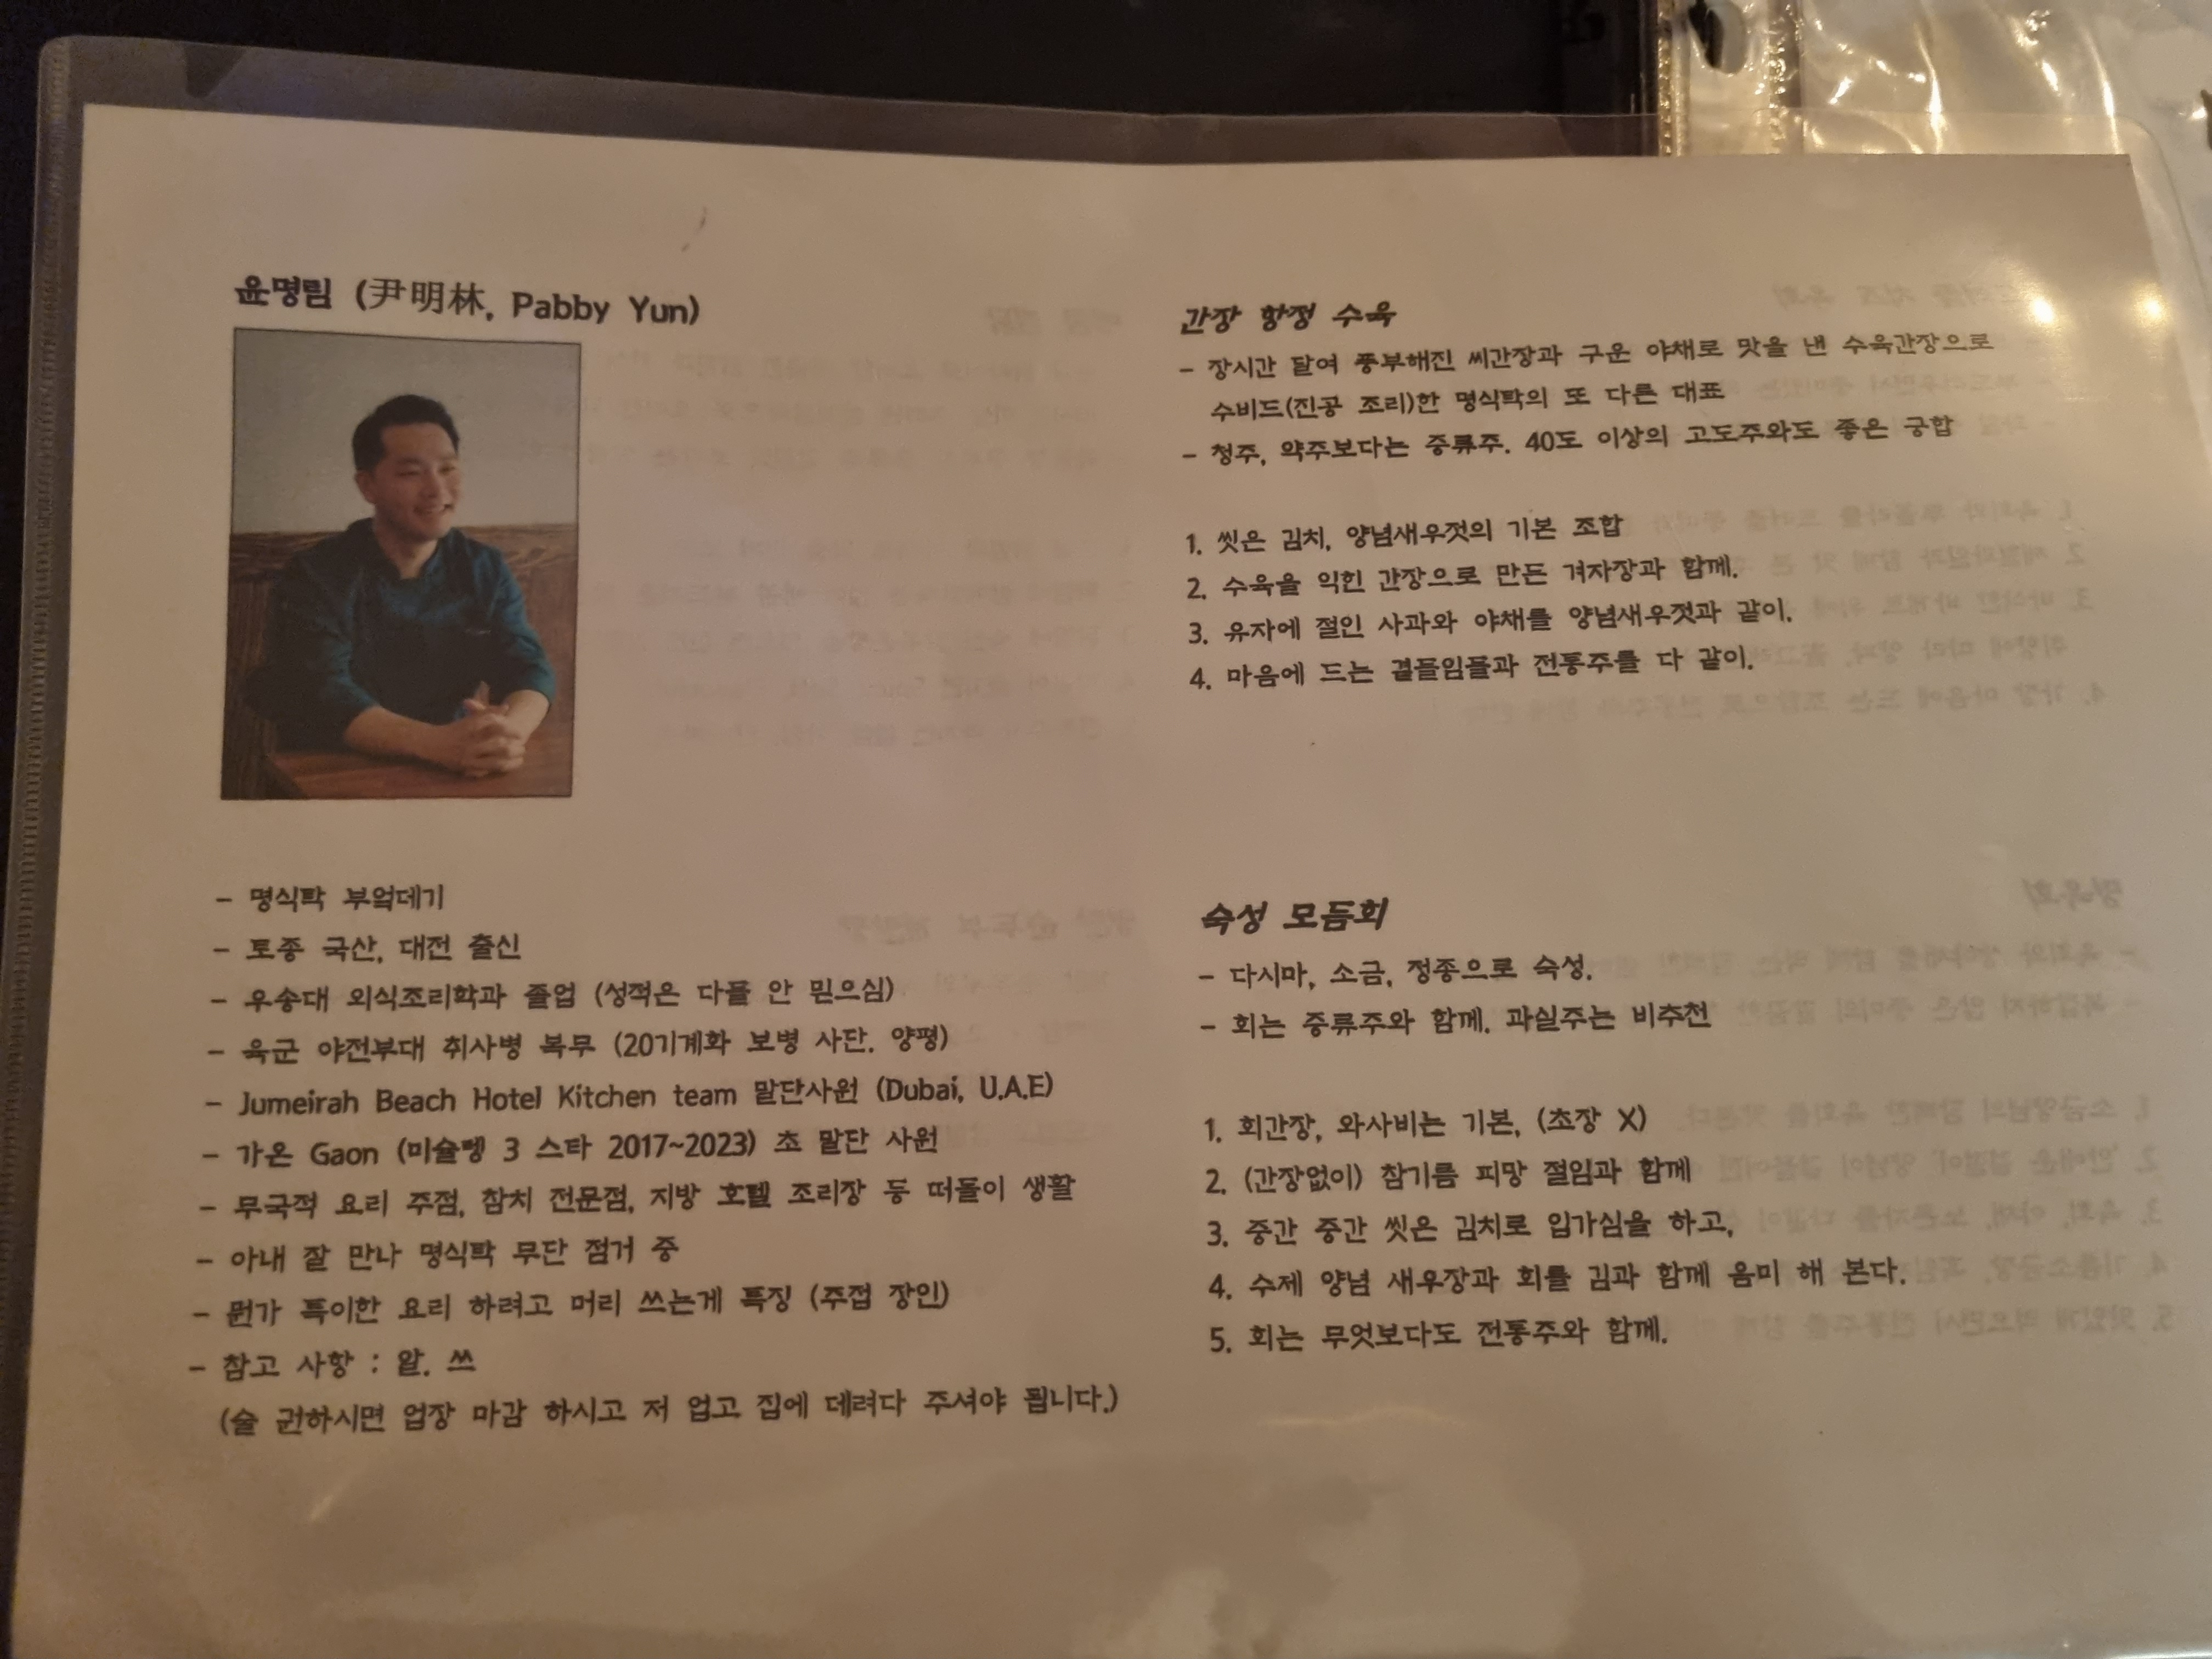 윤명림 (尹明林, Pabby Yun)
- 명식탁 부엌데기
- 토종 국산, 대전 출신
- 우송대 외식조리학과 졸업 (성적은 다들 안 믿으심)
- 육군 야전부대 취사병 복무 (20기계화 보병 사단. 양평)
- Jumeirah Beach Hotel Kitchen team 말단사원 (Dubai, U.A.E)
- 가온 Gaon (미슐렝 3 스타 2017~2023) 초 말단 사원
- 무국적 요리 주점, 참치 전문점, 지방 호텔 조리장 등 떠돌이 생활
- 아내 잘 만나 명식탁 무단 점거 중
- 뭔가 특이한 요리 하려고 머리 쓰는게 특징 (주접 장인)
- 참고 사항 : 알. 쓰
(술 권하시면 업장 마감 하시고 저 업고 집에 데려다 주셔야 됩니다.)
간장 항정 수육
- 장시간 달여 풍부해진 씨간장과 구운 야채로 맛을 낸 수육간장으로
수비드(진공 조리)한 명식탁의 또 다른 대표
- 청주, 약주보다는 증류주. 40도 이상의 고도주와도 좋은 궁합
1. 씻은 김치, 양념새우젓의 기본 조합
2. 수육을 익힌 간장으로 만든 겨자장과 함께.
3. 유자에 절인 사과와 야채를 양념새우젓과 같이.
4. 마음에 드는 곁들임들과 전통주를 다 같이.
숙성 모듬회
- 다시마, 소금, 정종으로 숙성.
- 회는 증류주와 함께. 과실주는 비추천
1. 회간장, 와사비는 기본, (초장 X)
2. (간장없이) 참기름 피망 절임과 함께
3. 중간 중간 씻은 김치로 입가심을 하고,
4. 수제 양념 새우장과 회를 김과 함께 음미 해 본다.
5. 회는 무엇보다도 전통주와 함께.